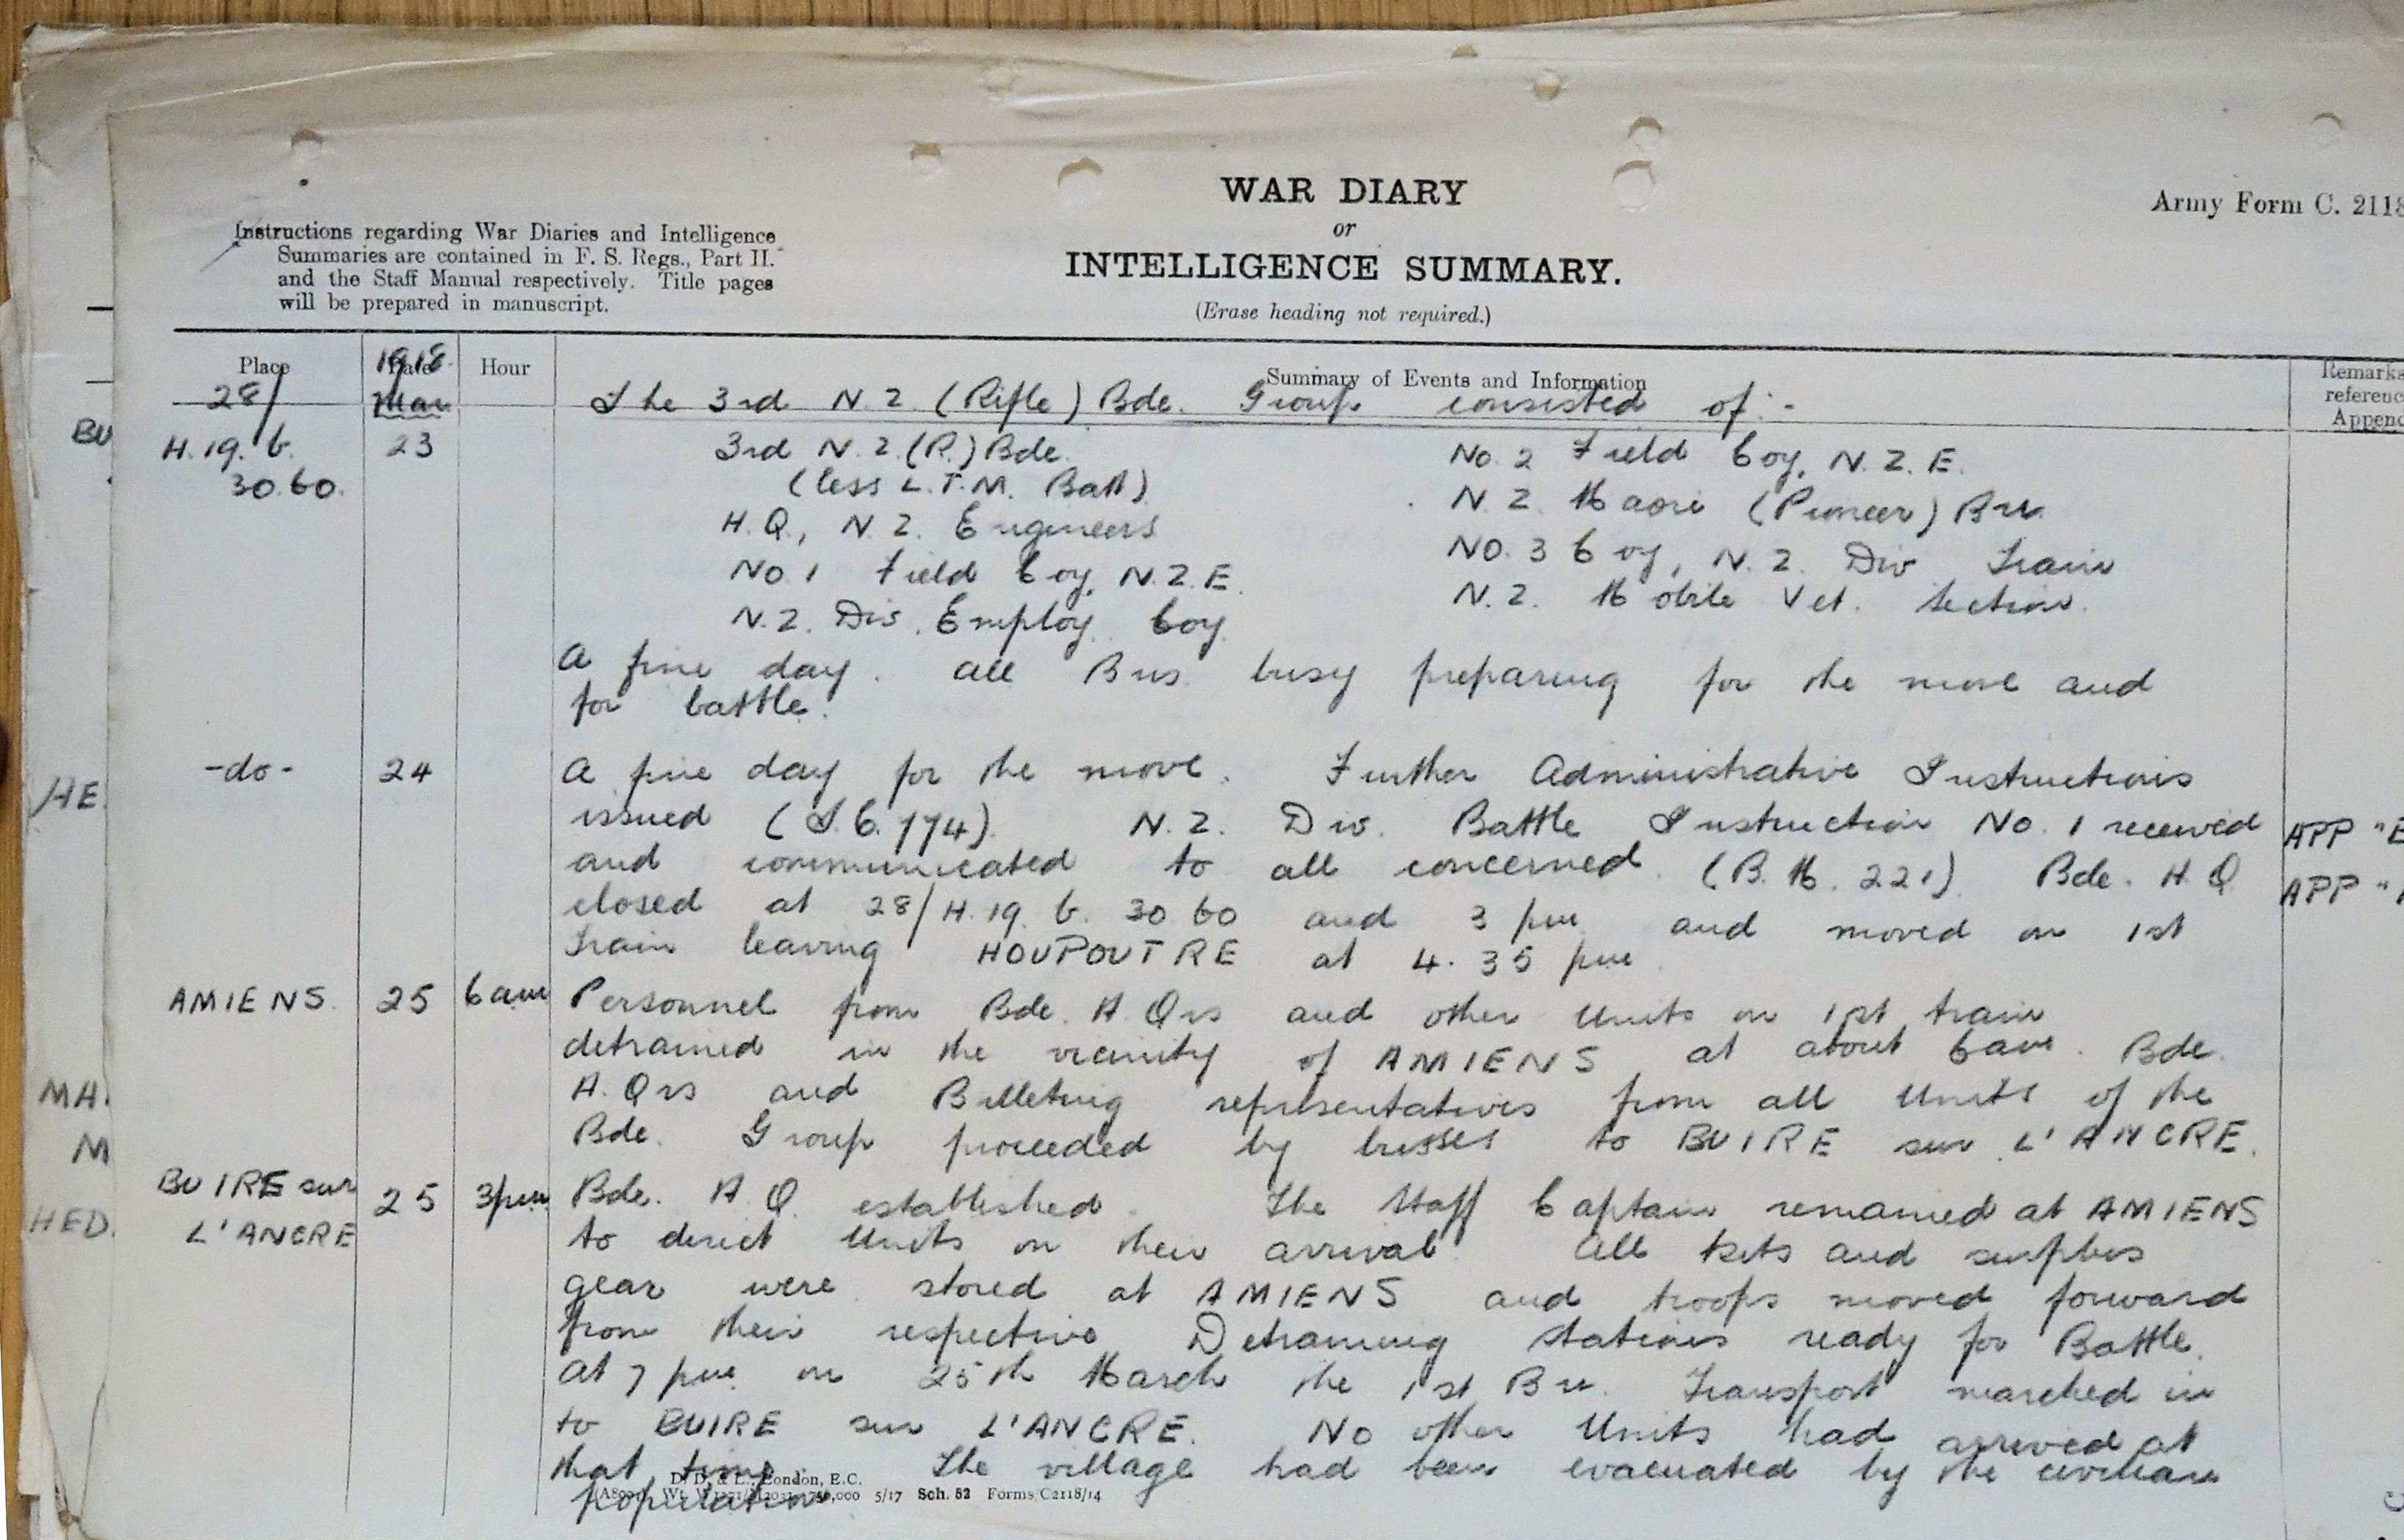 Army Form C. 2118
WAR DIARY
or
INTELLIGENCE SUMMARY.
(Erase heading not required.)
Instructions regarding War Diaries and Intelligence
Summaries are contained in F. S. Regs., Part II.
and the Staff Manual respectively. Title pages
will be prepared in manuscript.
Place
Date
Hour
Summary of Events and Information
Remarks
referenc
Append
1918
Mar
28/
H.19.b.
30.60.
23
The 3rd N.Z (Rifle) Bde. Group consisted of:-
3rd N.Z.(R.) Bde.
(less L.T.M. Batt)
H.Q., N.Z. Engineers
No. 1 Field Coy, N.Z.E.
N.Z. Div. Employ. Coy.
No. 2 Field Coy, N.Z.E.
N.Z. Maori (Pioneer) Bn.
NO. 3 Coy, N.Z. Div Train
N.Z. Mobile Vet. Section.
A fine day. All Bns. busy preparing for the move and
for battle.
-do-
24
A fine day for the move. Further Administrative Instructions
issued (S.C. 774). N.Z. Div. Battle Instruction No. 1 received
APP "E
and communicated to all concerned. (B.M. 221). Bde. H Q
APP "
closed at 28/H.19.b.30 60 and 3 pm and moved on 1st
train leaving HOUPOUTRE at 4.35 pm
AMIENS.
25
6 am
Personnel from Bde. H.Qrs and other Units on 1st train
detrained in the vicinity of AMIENS at about 6am. Bde.
H.Qrs and Billeting representatives from all Units of the
Bde. Group proceeded by busses to BUIRE sur L'ANCRE.
BUIRE sur
L'ANCRE
25
3pm
Bde. H.Q. established. The Staff Captain remained at AMIENS
to direct Units on their arrival. All kits and surplus
gear were stored at AMIENS and troops moved forward
from their respective Detraining stations ready for Battle.
At 7 pm on 25th March the 1st Bn. Transport marched in
to BUIRE sur L'ANCRE. No other Units had arrived at
that time. The village had been evacuated by the civilian
population
D. D. & L., London, E.C.
5/17 Sch. 52 Forms/C2118/14
BU
HE.
MA.
M
HED.